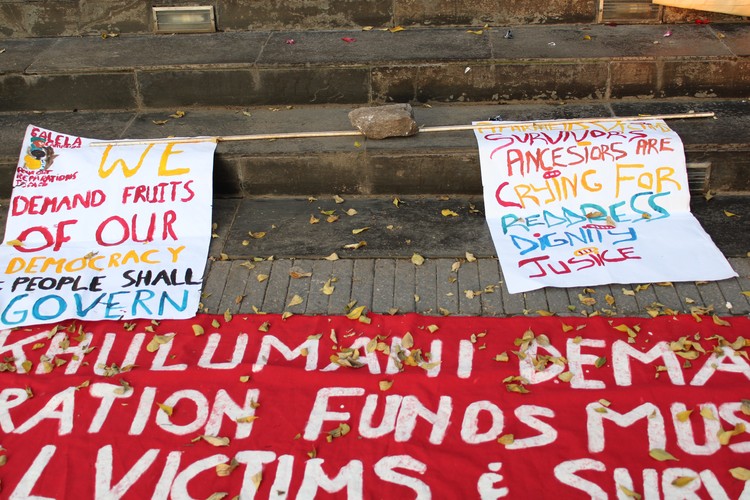 WE
DEMAND FRUITS
OF OUR
DEMOCRACY
PEOPLE SHALL
GOVERN
SURVIVORS
ANCESIORS ARE
CRYING FOR
REDDRESS
DIGNITY
JUSTICE
KHULUMANI DEMA
RATION FUNDS MUS
L VICTIMS &